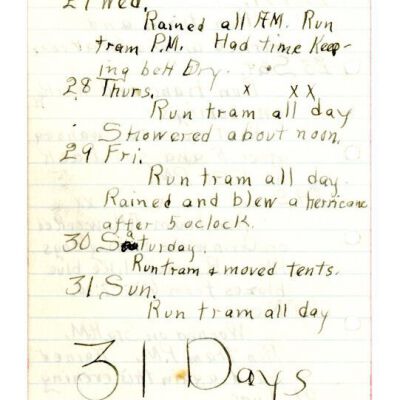 27 Wed.
Rained all A.M. Run
tram P.M. Had time Keep-
ing belt Dry.
28 Thurs. x xx
Run tram all day
Showered about noon.
29 Fri.
Run tram all day.
Rained and blew a herricane
after 5 oclock.
30 Saturday.
Run tram & moved tents.
31 Sun.
Run tram all day
31 Days